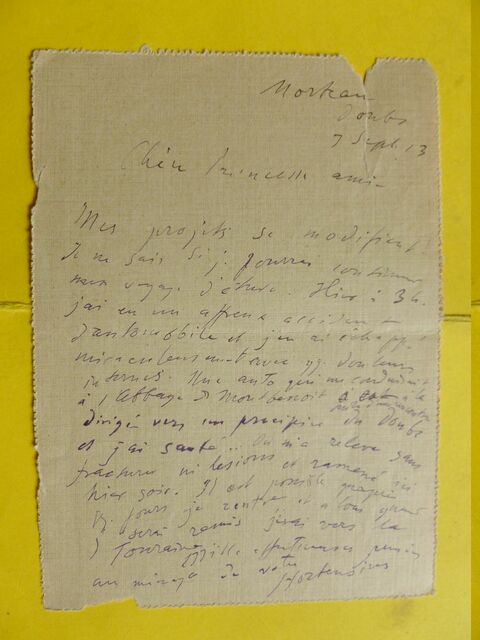 Morteau
Doubs
7 Sept. 13
Chère Princesse amie
Mes projets se modifient
Je ne sais si je pourrai continuer
mon voyage d'études. Hier à 3h.
j'ai eu un affreux accident
d'automobile et j'en ai échappé
miraculeusement avec qq. douleurs
internes. Une auto qui me conduisait
à l'Abbaye de Montbenoit a été
dirigée vers un précipice du Doubs
et j'ai sauté... On m'a relevé sans
fractures ni lésions et ramené ici
hier soir. Il est possible que
qq. jours je rentre et
serai remis j'irai vers la
Touraine affectueuses pensées
au de votre Hortensias